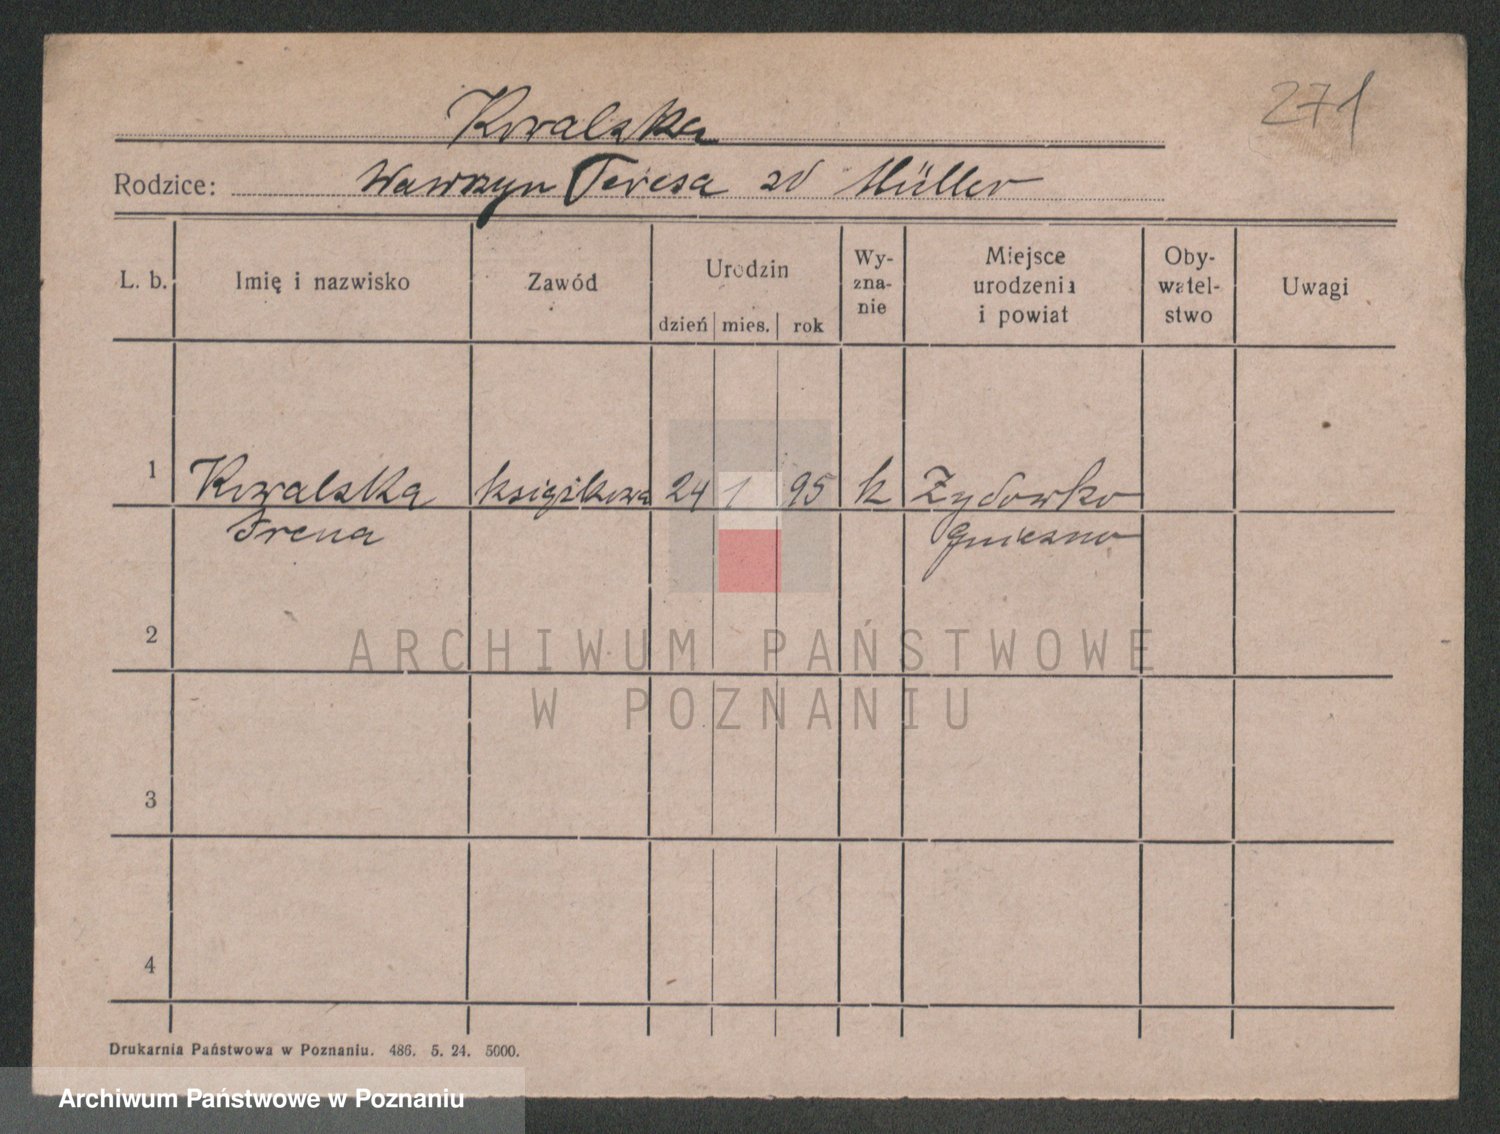 271
Kowalska
Rodzice: Wawrzyn Teresa zd Müller
L. b. Imię i nazwisko Zawód Urodzin dzień mies. rok Wy-zna-nie Miejsce urodzenia i powiat Oby-watel-stwo Uwagi
1 Kowalska książkowa 24 1 95 k Zydowko
Irena Gniezno
2
ARCHIWUM PAŃSTWOWE
W POZNANIU
3
4
Drukarnia Państwowa w Poznaniu. 486. 5. 24. 5000.
Archiwum Państwowe w Poznaniu